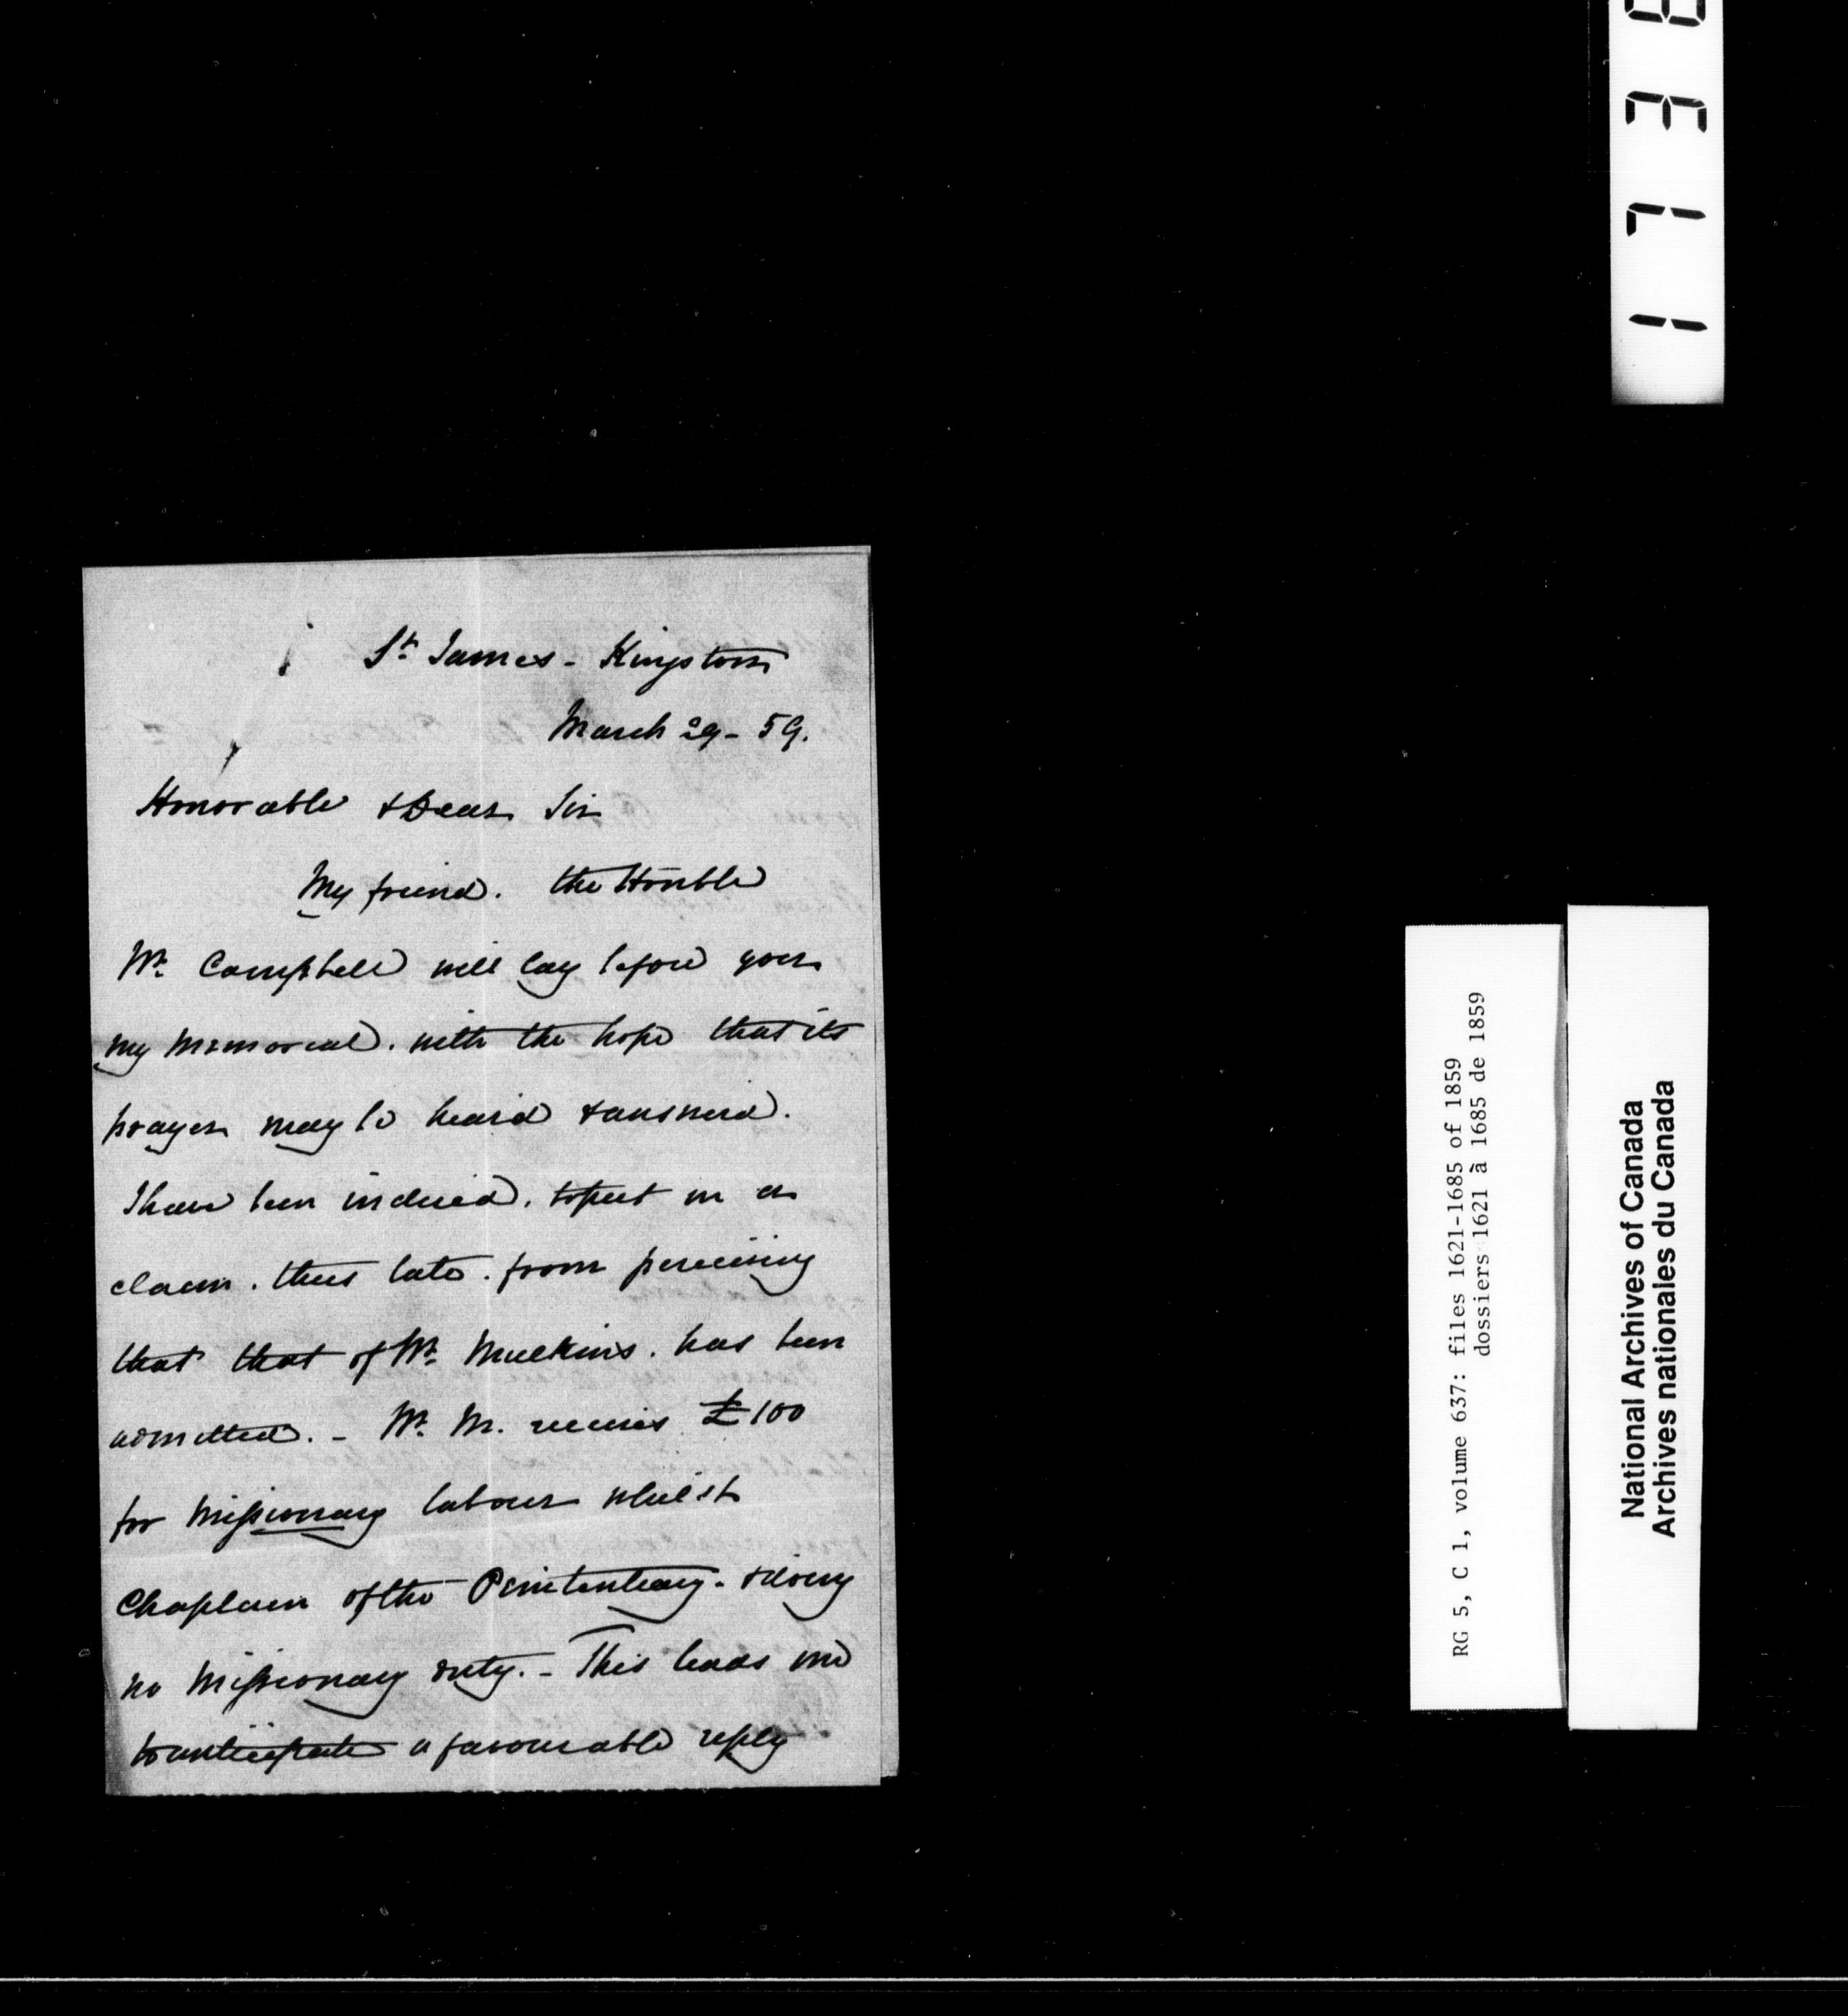 St James - Kingston
March 29 - 59.
Honorable & Dear Sir
My friend. the Honble
Mr. Campbell will lay before you
my memorial. with the hope that its
prayer may be heard & answered.
I have been induced. to put in a
claim. thus late. from perceiving
that that of Mr. Mulkins. has been
admitted. - Mr. M. receives £100
for missionary labour whilst
Chaplain of the Penitentiary - & doing
no missionary duty. - This leads me
to anticipate a favourable reply
1 7 3
RG 5, C 1, volume 637: files 1621-1685 of 1859
dossiers 1621 à 1685 de 1859
National Archives of Canada
Archives nationales du Canada